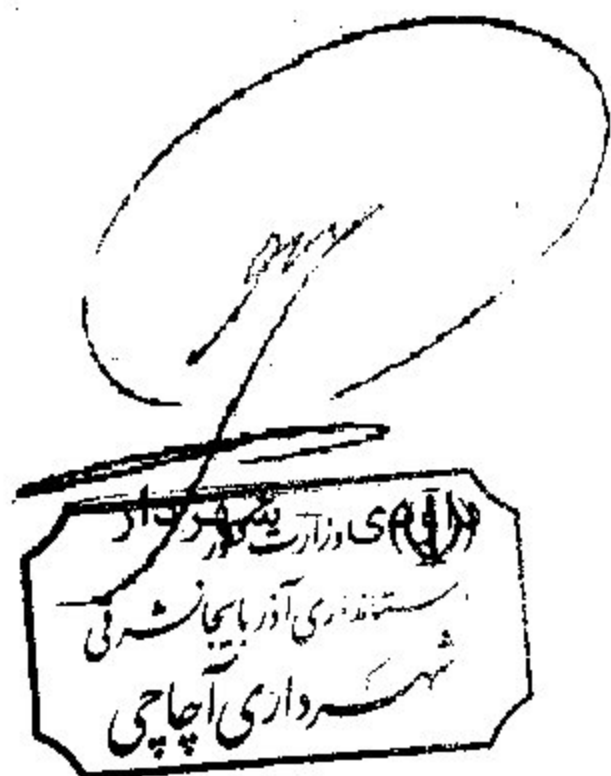 شهردار
وزارت کشور
استانداری آذربایجانشرقی
شهرداری آچاچی